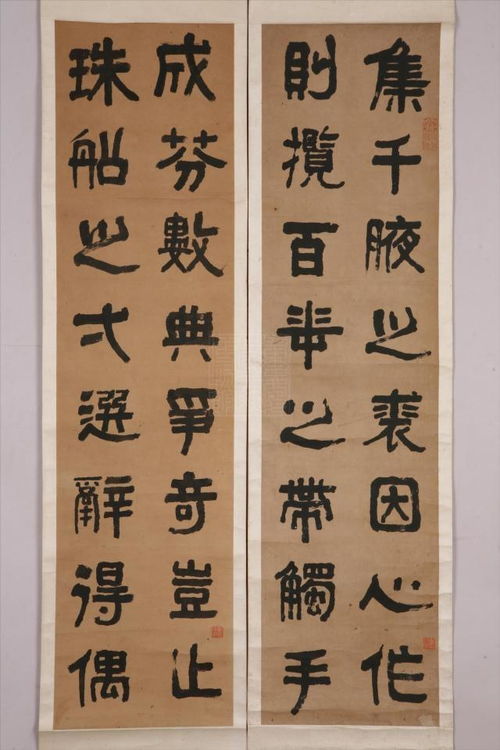 集千腋之裘因心作
則攬百之帶觸手
成芬數典爭奇豈止
珠船之弌選辭得偶